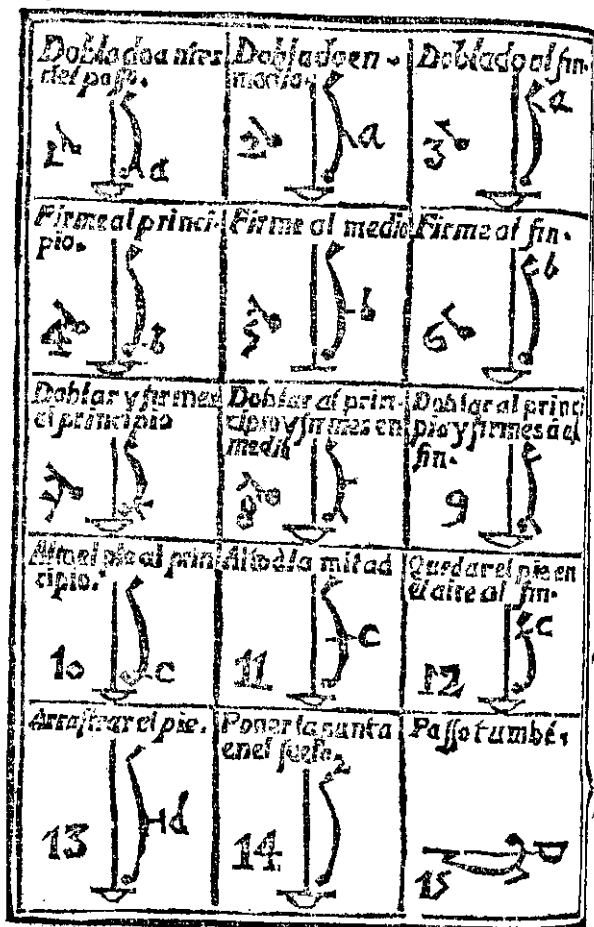 Doblado antes
del passo.
1 a
Dobladoen
medio.
2 a
Doblado al fin.
3 a
Firme al princi-
pio.
4 b
Firme al medio
5 b
Firme al fin.
6 b
Doblar y firmes
al principio
7
Doblar al prin-
cipio y firmes en
medio
8
Doblar al princi
pio y firmes à el
fin.
9
Alto el pie al prin
cipio.
10 c
Alto à la mitad
11 c
Quedar el pie en
el aire al fin.
12 c
Arrastrar el pie.
13 d
Poner la punta
en el suelo.
14
Passo tumbé.
15